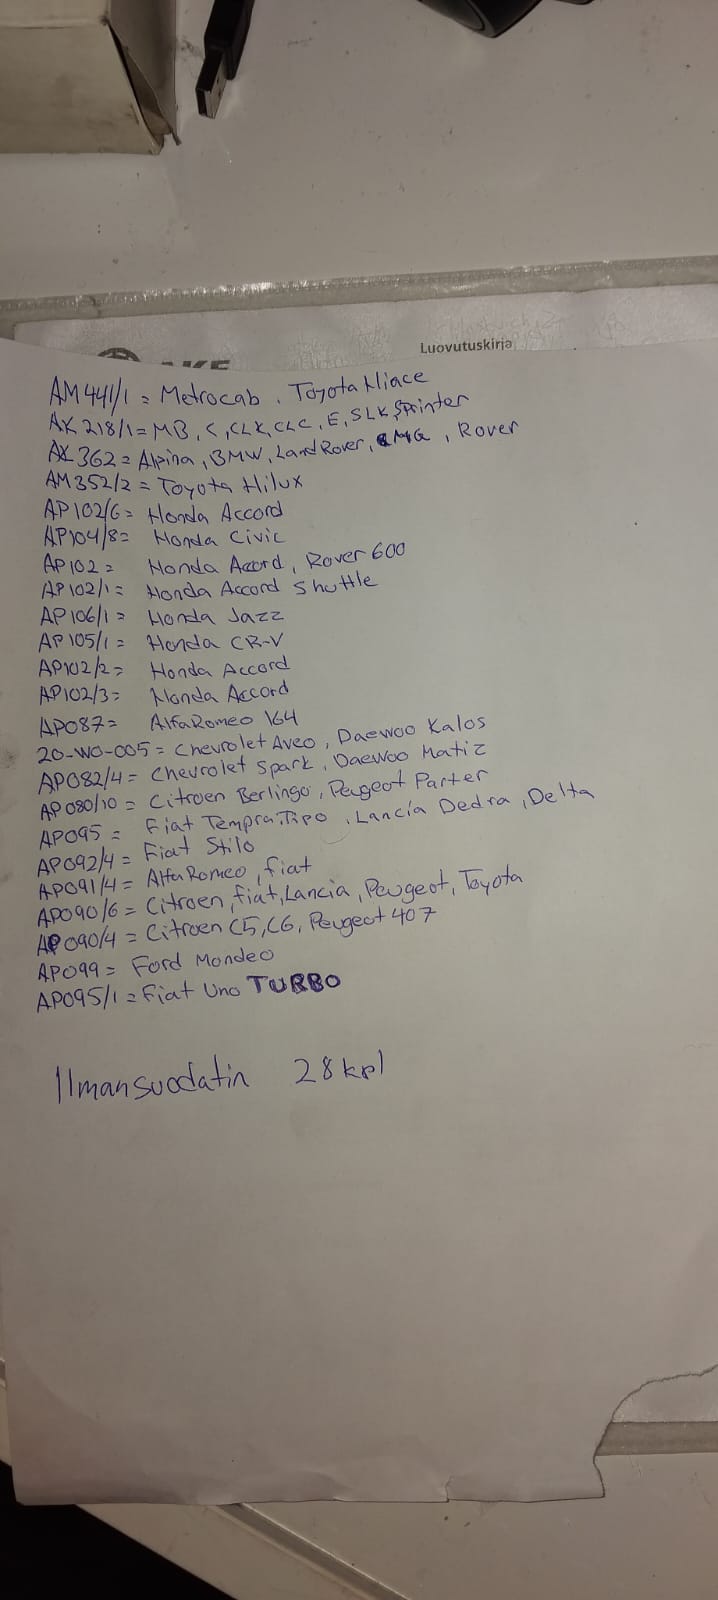 Luovutuskirja
AKE
AM441/1 = Metrocab, Toyota Hiace
AK218/1 = MB, C, CLK, CLC, E, SLK, Sprinter
AK362 = Alpina, BMW, Land Rover, MG, Rover
AM352/2 = Toyota Hilux
AP102/6 = Honda Accord
AP104/8 = Honda Civic
AP102 = Honda Accord, Rover 600
AP102/1 = Honda Accord Shuttle
AP106/1 = Honda Jazz
AP105/1 = Honda CR-V
AP102/2 = Honda Accord
AP102/3 = Honda Accord
AP087 = Alfa Romeo 164
20-WO-005 = Chevrolet Aveo, Daewoo Kalos
AP082/4 = Chevrolet Spark, Daewoo Matiz
AP080/10 = Citroen Berlingo, Peugeot Parter
AP095 = Fiat Tempra, Tipo, Lancia Dedra, Delta
AP092/4 = Fiat Stilo
AP091/4 = Alfa Romeo, fiat
AP090/6 = Citroen, fiat, Lancia, Peugeot, Toyota
AP090/4 = Citroen C5, C6, Peugeot 407
AP099 = Ford Mondeo
AP095/1 = Fiat Uno TURBO
Ilmansuodatin 28kpl